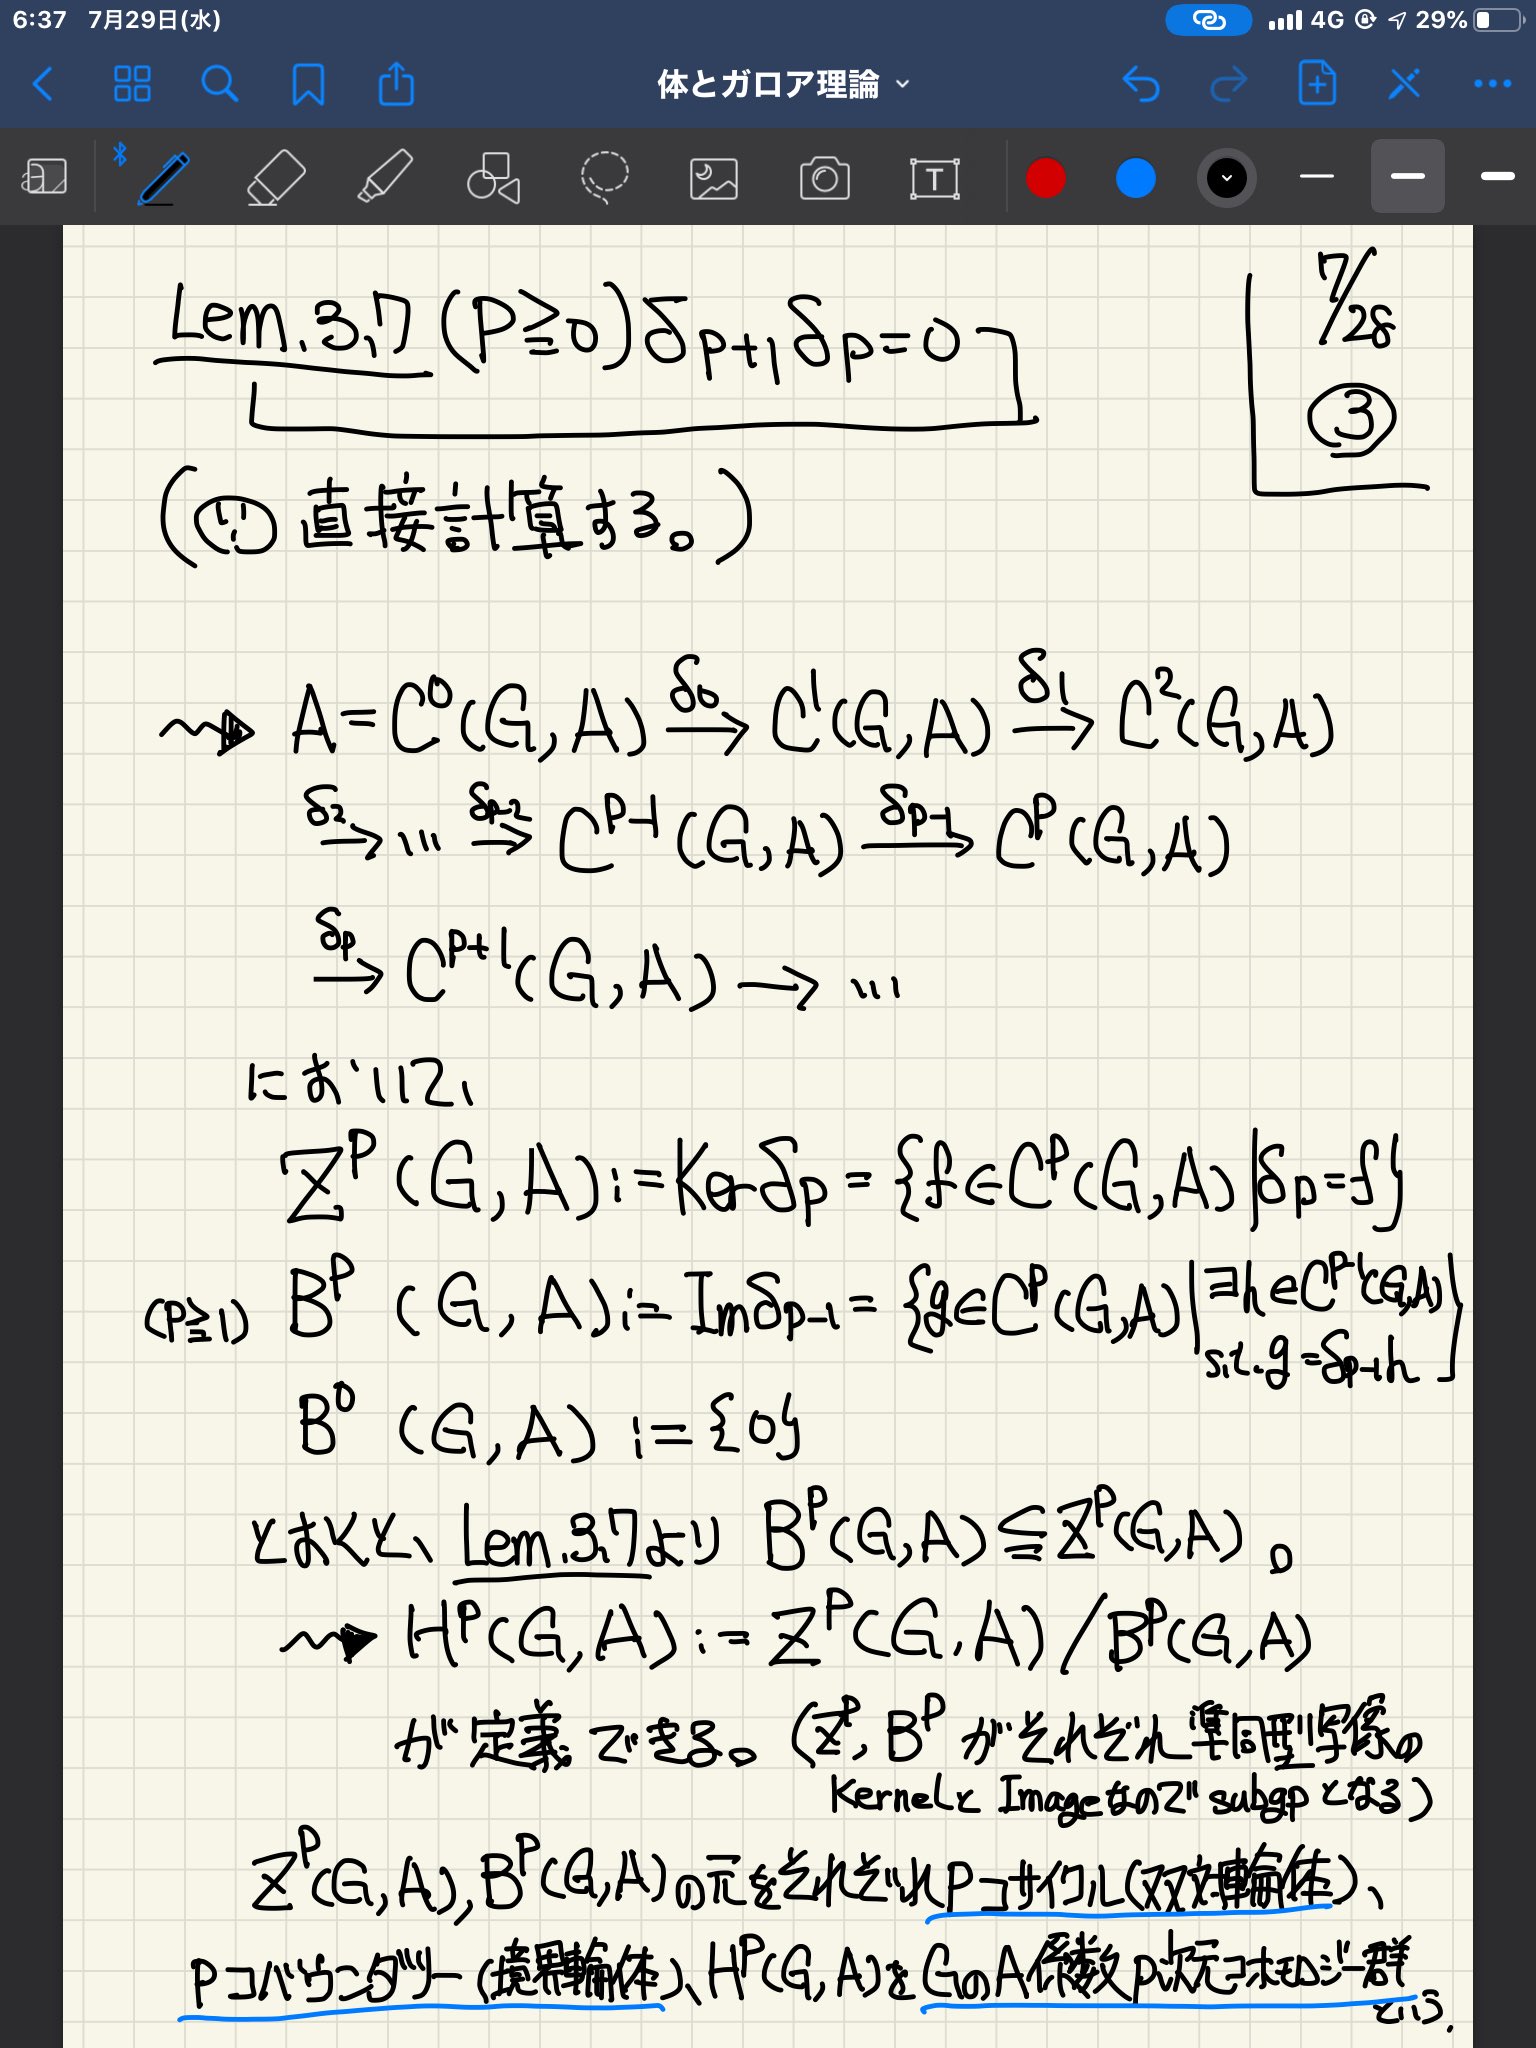 6:37 7月29日(水)
4G 29%
体とガロア理論
Lem.3.7 (P≧0) δp+1 δp = 0
7/28
③
(∵ 直接計算する。)
A = C⁰(G,A) δ0→ C¹(G,A) δ1→ C²(G,A)
δ2→ … δp-2→ C^{P-1}(G,A) δp-1→ C^P(G,A)
δp→ C^{P+1}(G,A) → …
において、
Z^P(G,A) := Ker δp = {f∈C^P(G,A) | δp = f}
(P≧1) B^P(G,A) := Im δp-1 = {g∈C^P(G,A) | ∃h∈C^{P-1}(G,A)
s.t. g = δp-1 h}
B⁰(G,A) := {0}
とおくと、Lem.3.7より B^P(G,A) ≦ Z^P(G,A)。
H^P(G,A) := Z^P(G,A) / B^P(G,A)
が定義できる。(Z^P, B^P がそれぞれ準同型写像の
KernelとImageなので subgpとなる)
Z^P(G,A), B^P(G,A)の元をそれぞれPコサイクル(双対輪体)、
Pコバウンダリー(境界輪体)、H^P(G,A)をGのA係数p次元コホモロジー群
という.